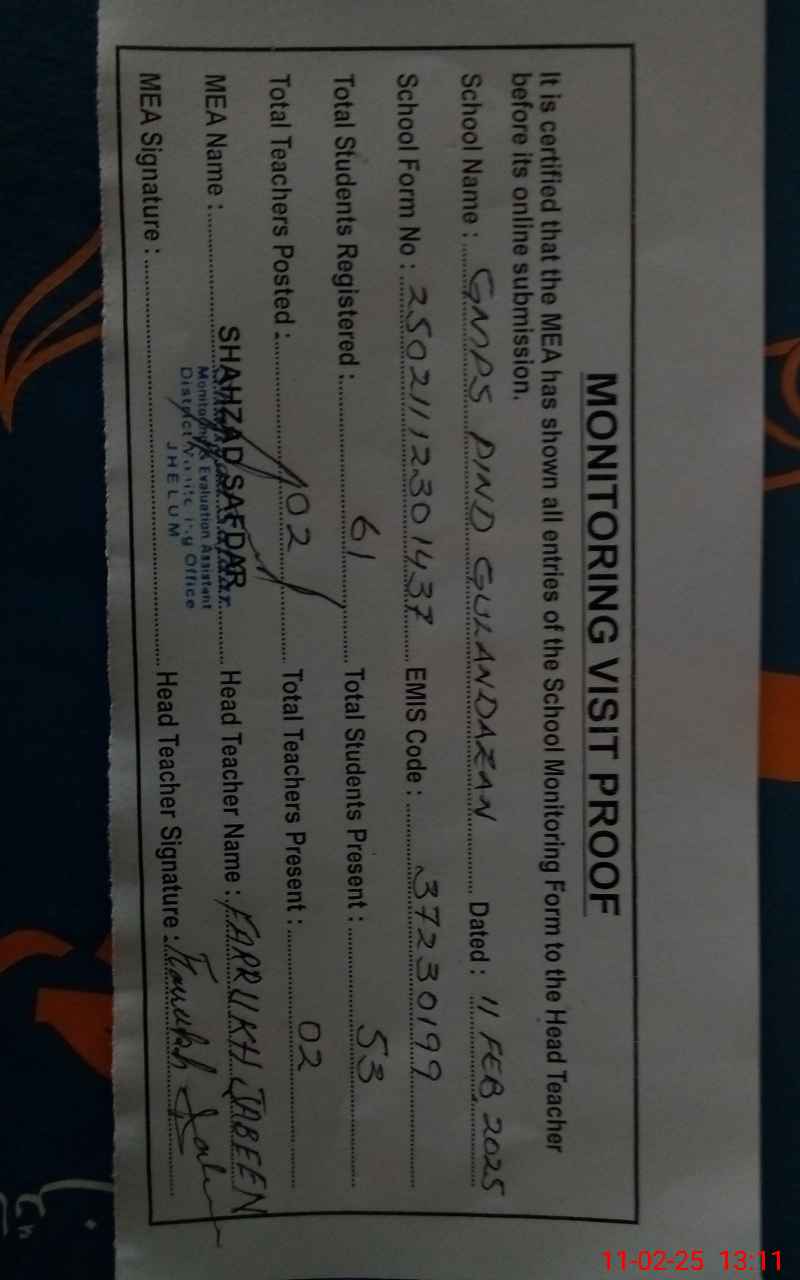 MONITORING VISIT PROOF
It is certified that the MEA has shown all entries of the School Monitoring Form to the Head Teacher
before its online submission.
School Name : GMPS PIND GULANDAZAN Dated : 11 FEB 2025
School Form No : 25021112301437 EMIS Code : 37230199
Total Students Registered : 61 Total Students Present : 53
Total Teachers Posted : 02 Total Teachers Present : 02
MEA Name : SHAHZAD SAFDAR Head Teacher Name : FARRUKH JABEEN
Monitoring & Evaluation Assistant
District Monitoring Office
JHELUM
MEA Signature : Head Teacher Signature : Farrukh Jabeen
11-02-25 13:11